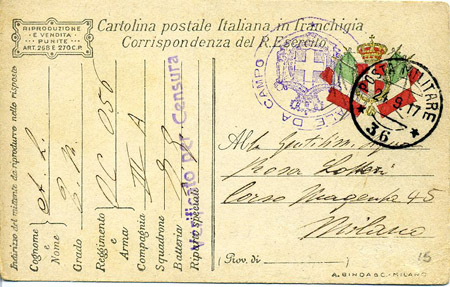 RIPRODUZIONE
E VENDITA
PUNITE
ART. 268 E 270 C.P.
Cartolina postale Italiana in franchigia
Corrispondenza del R. Esercito
POSTA MILITARE
36
DA CAMPO
Verificato per Censura
Indirizzo del mittente da riprodurre nelle risposte
Cognome e Nome
Grado
Reggimento e Arma
Compagnia III A
Squadrone
Batteria
Riparto speciale
Alla Gentilissima
Rosa
Corso Magenta 45
Milano
(Prov. di )
15
A. BINDA & C. - MILANO